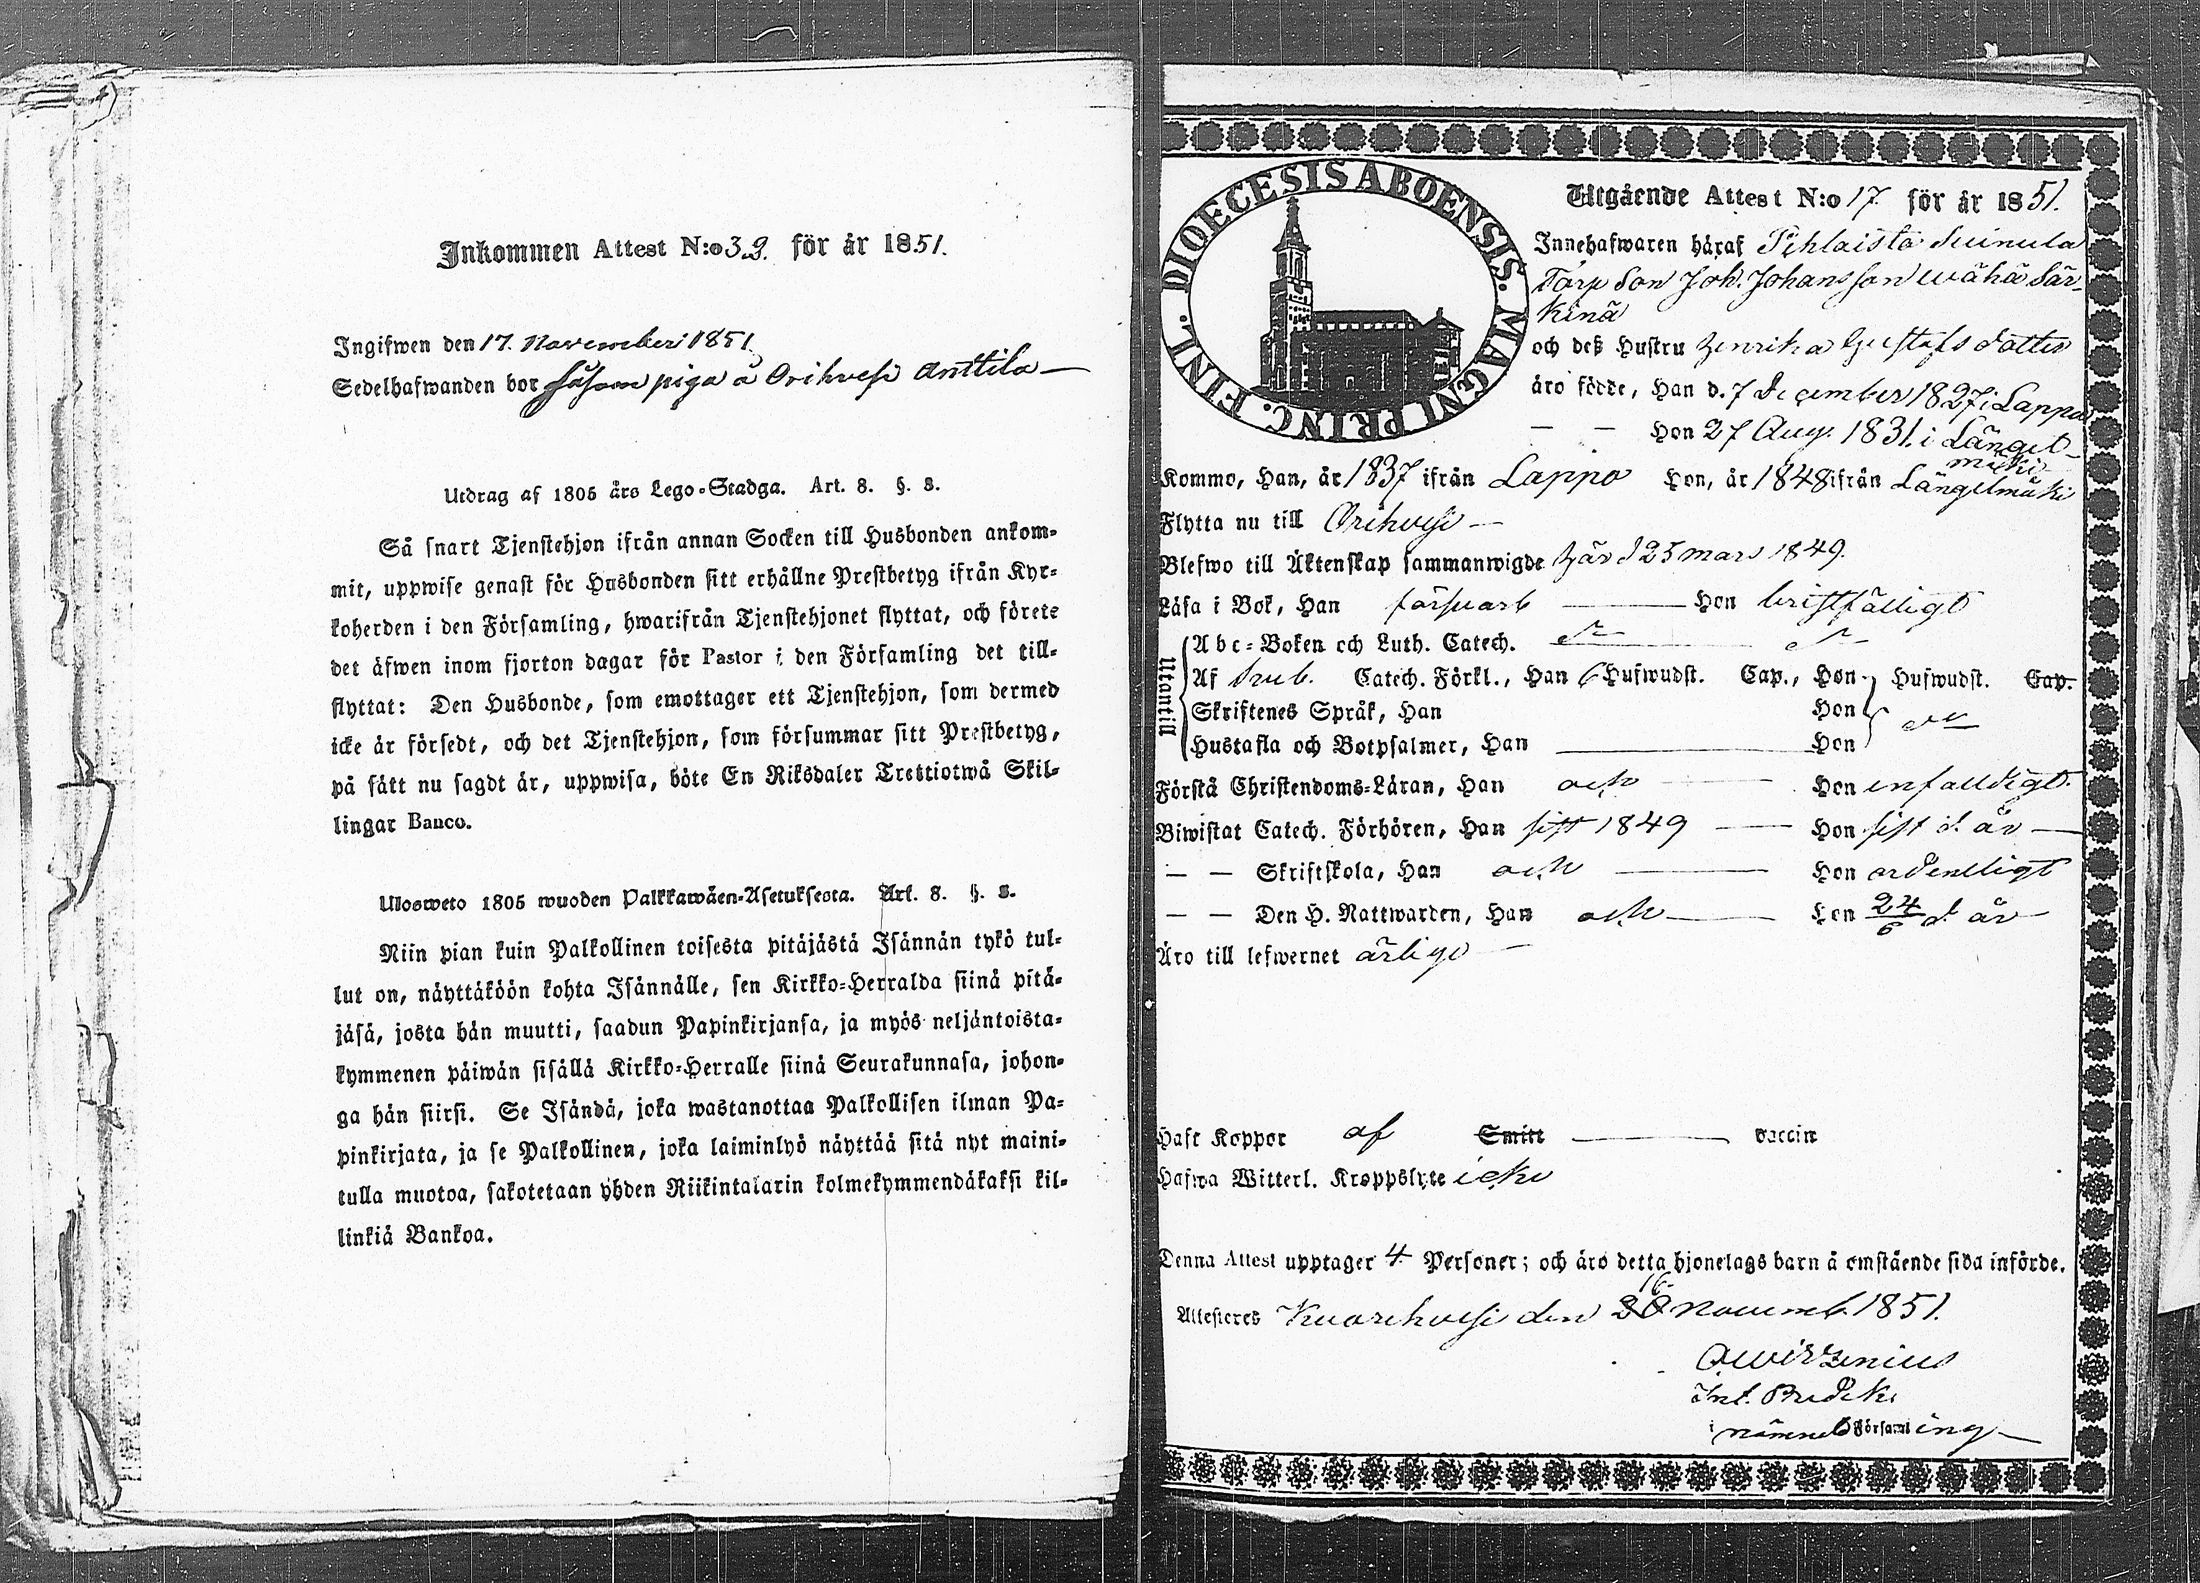 Inkommen Attest N:o 32. för år 1851.
Ingifwen den 17. November 1851
Sedelhafwanden bor såsom piga å Orihvesi Anttila
Utdrag af 1805 års Lego-Stadga. Art. 8. §. 8.
Så snart Tjenstehjon ifrån annan Socken till Husbonden ankom-
mit, uppwise genast för Husbonden sitt erhållne Prestbetyg ifrån Kyr-
koherden i den Församling, hwarifrån Tjenstehjonet flyttat, och förete
det äfwen inom fjorton dagar för Pastor i den Församling det till-
flyttat: Den Husbonde, som emottager ett Tjenstehjon, som dermed
icke är försedt, och det Tjenstehjon, som försummar sitt Prestbetyg,
på sätt nu sagdt är, uppwisa, böte En Riksdaler Trettiotwå Skil-
lingar Banco.
Ulosweto 1805 wuoden Palkkawäen-Asetuksesta. Art. 8. §. 8.
Niin pian kuin Palkollinen toisesta pitäjästä Isännän tykö tul-
lut on, näyttäköön kohta Isännälle, sen Kirkko-Herralda siinä pitä-
jäsä, josta hän muutti, saadun Papinkirjansa, ja myös neljäntoista-
kymmenen päiwän sisällä Kirkko-Herralle siinä Seurakunnasa, johon-
ga hän siirsi. Se Isändä, joka wastanottaa Palkollisen ilman Pa-
pinkirjata, ja se Palkollinen, joka laiminlyö näyttää sitä nyt maini-
tulla muotoa, sakotetaan yhden Riikintalarin kolmekymmendäkaksi kil-
linkiä Bankoa.
DIOECESIS ABOENSIS. MAGNI PRINC. FINL.
Utgående Attest N:o 17 för år 1851.
Innehafwaren häraf Pihlaisto Suinula
Torp Son Joh. Johansson Wähä Sär-
kinä
och deß Hustru Henrika Gustafs dotter
äro födde, Han d. 7 December 1827 i Lappo
— — Hon 27 Aug. 1831. i Längel-
mäki
Kommo, Han, år 1837 ifrån Lappo Hon, år 1848 ifrån Längelmäki
Flytta nu till Orihvesi
Blefwo till Äktenskap sammanwigde här d 25 mars 1849.
Läsa i Bok, Han försvarl Hon bristfälligt
Utantill
Abc-Boken och Luth. Catech.
Af Sveb. Catech. Förkl., Han 6 Hufwudst. Cap., Hon Hufwudst. Cap.
Skriftenes Språk, Han Hon
Hustafla och Botpsalmer, Han Hon
Förstå Christendoms-Läran, Han och Hon enfalldigt.
Biwistat Catech. Förhören, Han sist 1849 Hon sist d. år
— — Skriftskola, Han och Hon ordentligt
— — Den H. Nattwarden, Han och Hon 24/6 d. år
Äro till lefwernet ärlige
Haft Koppor af Smitt vaccin
Hafwa Witterl. Kroppslyte icke
Denna Attest upptager 4 Personer; och äro detta hjonelags barn å omstående sida införde.
16
Attesteres Kuorehvesi den 20 Novemb. 1851.
A Wirzenius
i nämnd Församling